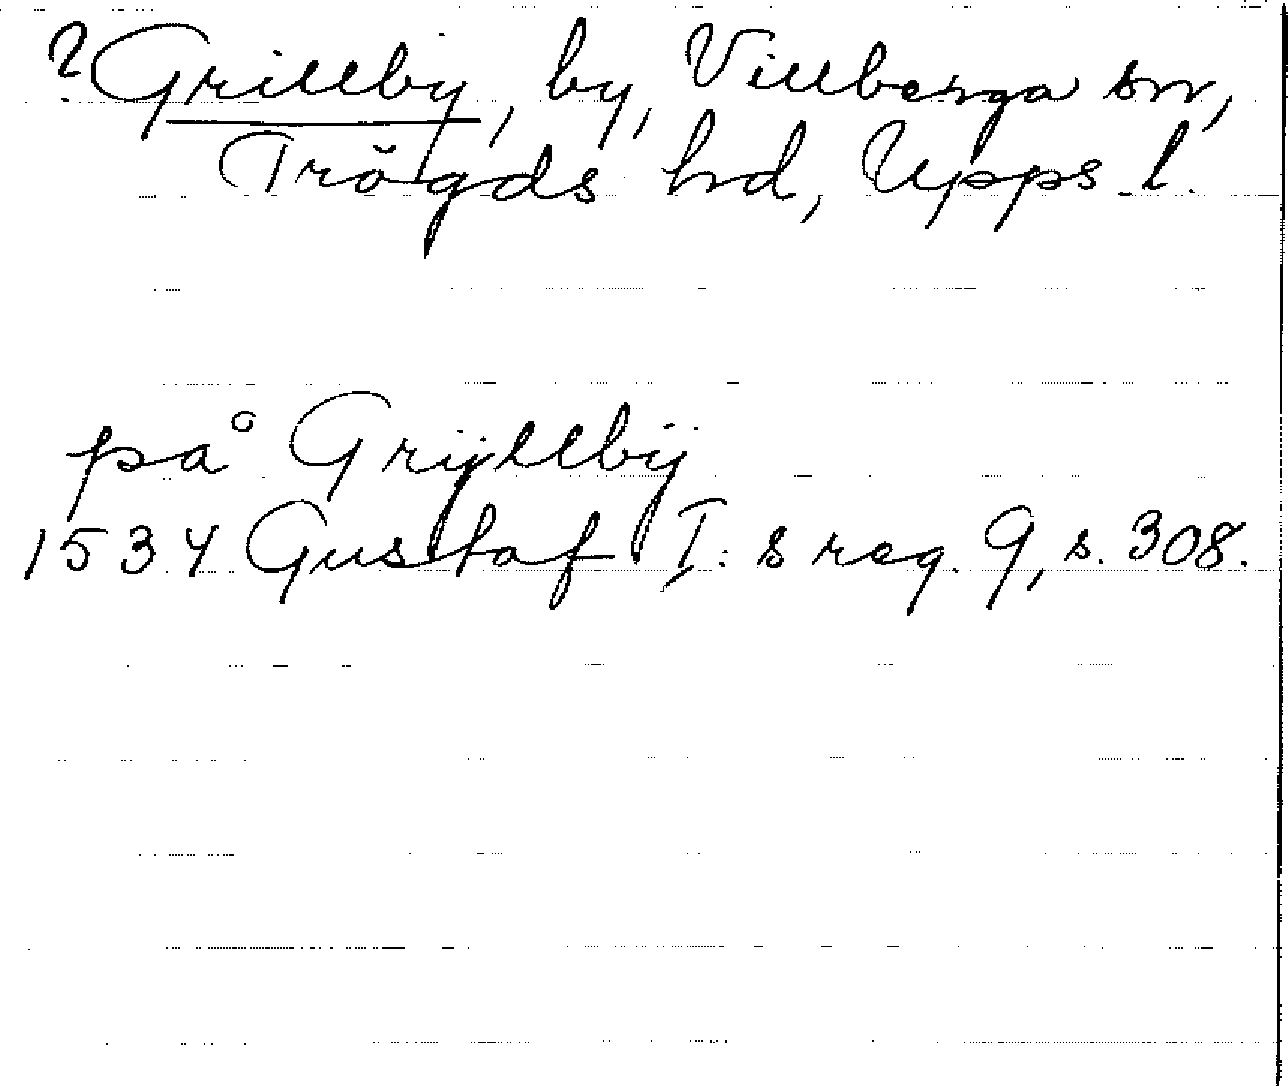 ?Grillby, by, Villberga sn,
Trögds hd, Upps l.
på Grÿllbÿ
1534 Gustaf I:s reg. 9, s. 308.